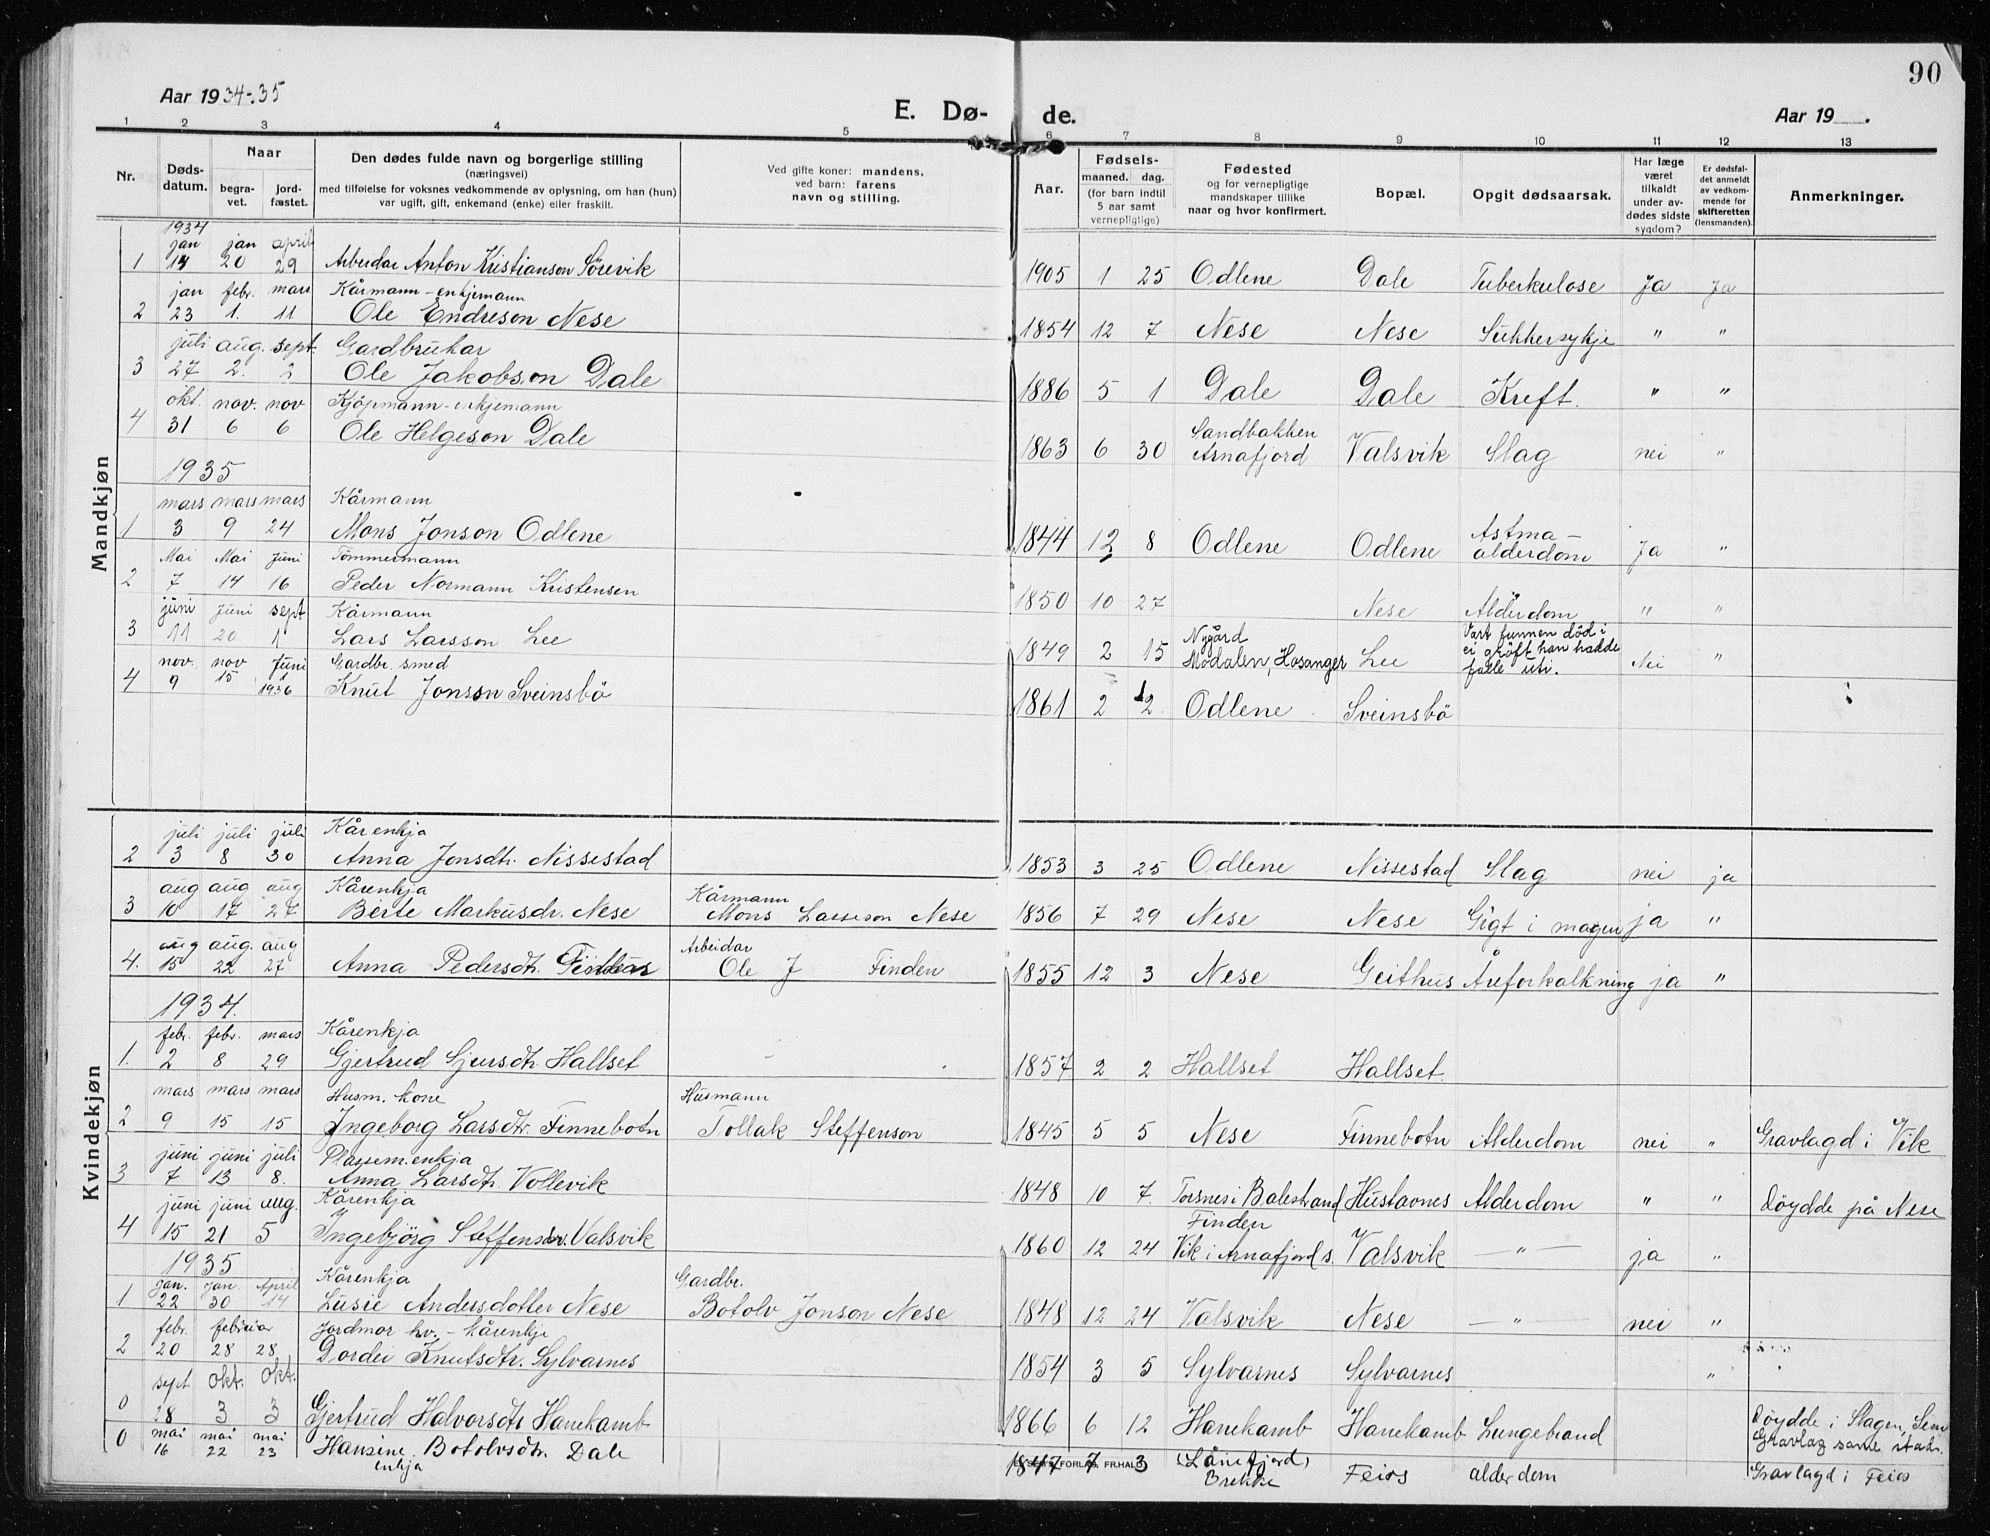 90
Aar 1934-35 E. Dø- de. Aar 19___.
1 2 3 4 5 6 7 8 9 10 11 12 13
Nr. Dødsdatum. Naar begravet. jordfæstet. Den dødes fulde navn og borgerlige stilling (næringsvei) med tilføielse for voksnes vedkommende av oplysning, om han (hun) var ugift, gift, enkemand (enke) eller fraskilt. Ved gifte koner: mandens, ved barn: farens navn og stilling. Aar. Fødsels- maaned. dag. (for barn indtil 5 aar samt vernepligtige) Fødested og for vernepligtige mandskaper tillike naar og hvor konfirmert. Bopæl. Opgit dødsaarsak. Har læge været tilkaldt under avdødes sidste sygdom? Er dødsfaldet anmeldt av vedkommende for skifteretten (lensmanden). Anmerkninger.
Mandkjøn
1934
jan jan april
1 14 20 29 Arbeidar Anton Kristianson Sørevik 1905 1 25 Odlene Dale Tuberkulose Ja Ja
jan febr. mars Kårmann - enkjemann
2 23 1. 11 Ole Endreson Nese 1854 12 7 Nese Nese Sukkersykje " "
juli aug. sept. Gardbrukar
3 27 2. 2 Ole Jakobson Dale 1886 5 1 Dale Dale Kreft. " "
okt. nov. nov Kjöpmann - enkjemann
4 31 6 6 Ole Helgeson Dale 1863 6 30 Sandbakken Arnafjord Valsvik Slag nei "
1935
mars mars mars Kårmann
1 3 9 24 Mons Jonson Odlene 1844 12 8 Odlene Odlene Astma - alderdom Ja "
Mai Mai Juni Tömmermann
2 7 14 16 Peder Normann Kristensen 1850 10 27 Nese Alderdom " "
juni Juni sept Kårmann
3 11 20 1 Lars Larsson Lee 1849 2 15 Nygård Modalen, Hosanger Lee Vart funnen död i ei gröft han hadde falle uti. Nei "
nov. nov Juni Gardbr. smed
4 9 15 1 1936 Knut Jonson Sveinsbö 1861 2 12 Odlene Sveinsbö
Kvindekjøn
juli juli juli Kårenkja
2 3 8 30 Anna Jonsdtr. Nissestad 1853 3 25 Odlene Nissestad Slag nei ja
aug aug aug Kårenkja Kårmann
3 10 17 27 Berte Markusdr. Nese Mons Lasseson Nese 1856 7 29 Nese Nese Gigt i magen ja "
aug aug. aug Arbeidar
4. 15 22 27 Anna Pedersdtr. Ole J Finden 1855 12 3 Nese Geithus Åreforkalkning ja "
1934.
febr. febr. mars Kårenkja
1. 2 8 29 Gjertrud Sjursdtr. Hallset 1857 2 2 Hallset Hallset.
mars mars mars Husm. kone Husmann
2 9 15 15 Ingeborg Larsdtr. Finnebotn Tollak Steffenson 1845 5 5 Nese Finnebotn Alderdom nei " Gravlagd i Vik
juni juni juli Plassem.enkja
3 7 13 8. Anna Larsdtr. Vollevik 1848 10 7 Torsnes i Balestrand Hustaones Alderdom " " Döydde på Nese
juni juni aug. Kårenkja
4 15 21 5 Ingebjörg Steffensdr. Valsvik 1860 12 24 Finden Vik i Arnafjord s. Valsvik — " — ja "
1935
Jan. jan. April Kårenkja Gardbr.
1 22 30 14 Lusie Andersdotter Nese Botolv Jonson Nese 1848 12 24 Valsvik Nese — " — nei "
febr. februar Jordmor hv. - kårenkje
2 20 28 28 Dordei Knutsdtr. Sylvarnes 1854 3 5 Sylvarnes Sylvarnes "
sept okt. okt.
0 28 3 3 Gjertrud Halvorsdtr Hanekamb 1866 6 12 Hanekamb Hanekamb Lungebrand Döydde i Slagen, Sem Gravlag same stad.
mai mai mai
0 16 22 23 Hansine Botolvsdtr. Dale enkja 1847 7 3 (Lånefjord) Brekke Feios alderdom Gravlagd i Feios
FORLAG, FR.HALD